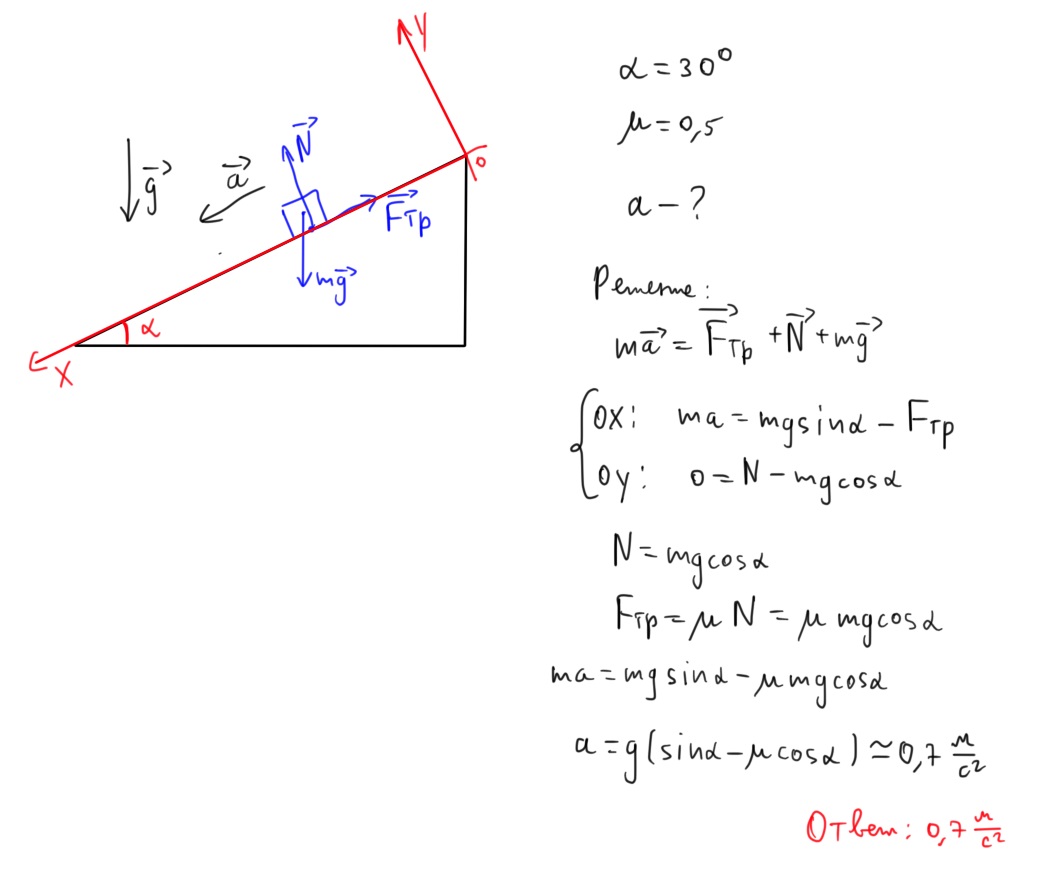 y
o
N⃗
a⃗
g⃗
F⃗тр
mg⃗
α
x
α = 30°
μ = 0,5
a – ?
Решение:
ma⃗ = F⃗тр + N⃗ + mg⃗
ox: ma = mg sinα – Fтр
oy: 0 = N – mg cosα
N = mg cosα
Fтр = μ N = μ mg cosα
ma = mg sinα – μ mg cosα
a = g(sinα – μ cosα) ≃ 0,7 м/с²
Ответ: 0,7 м/с²